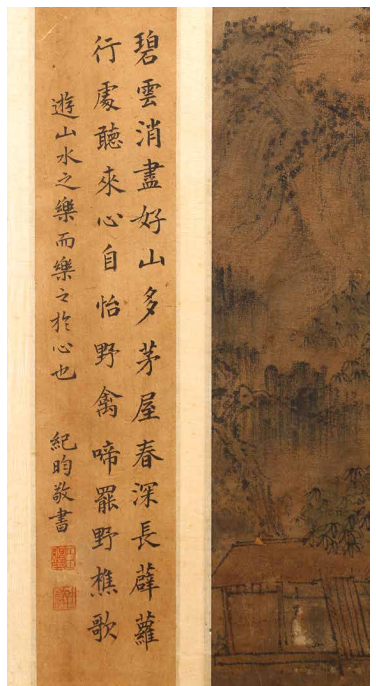 碧雲消盡好山多茅屋春深長薜蘿
行處聽來心自怡野禽啼罷野樵歌
遊山水之樂而樂之於心也
紀昀敬書